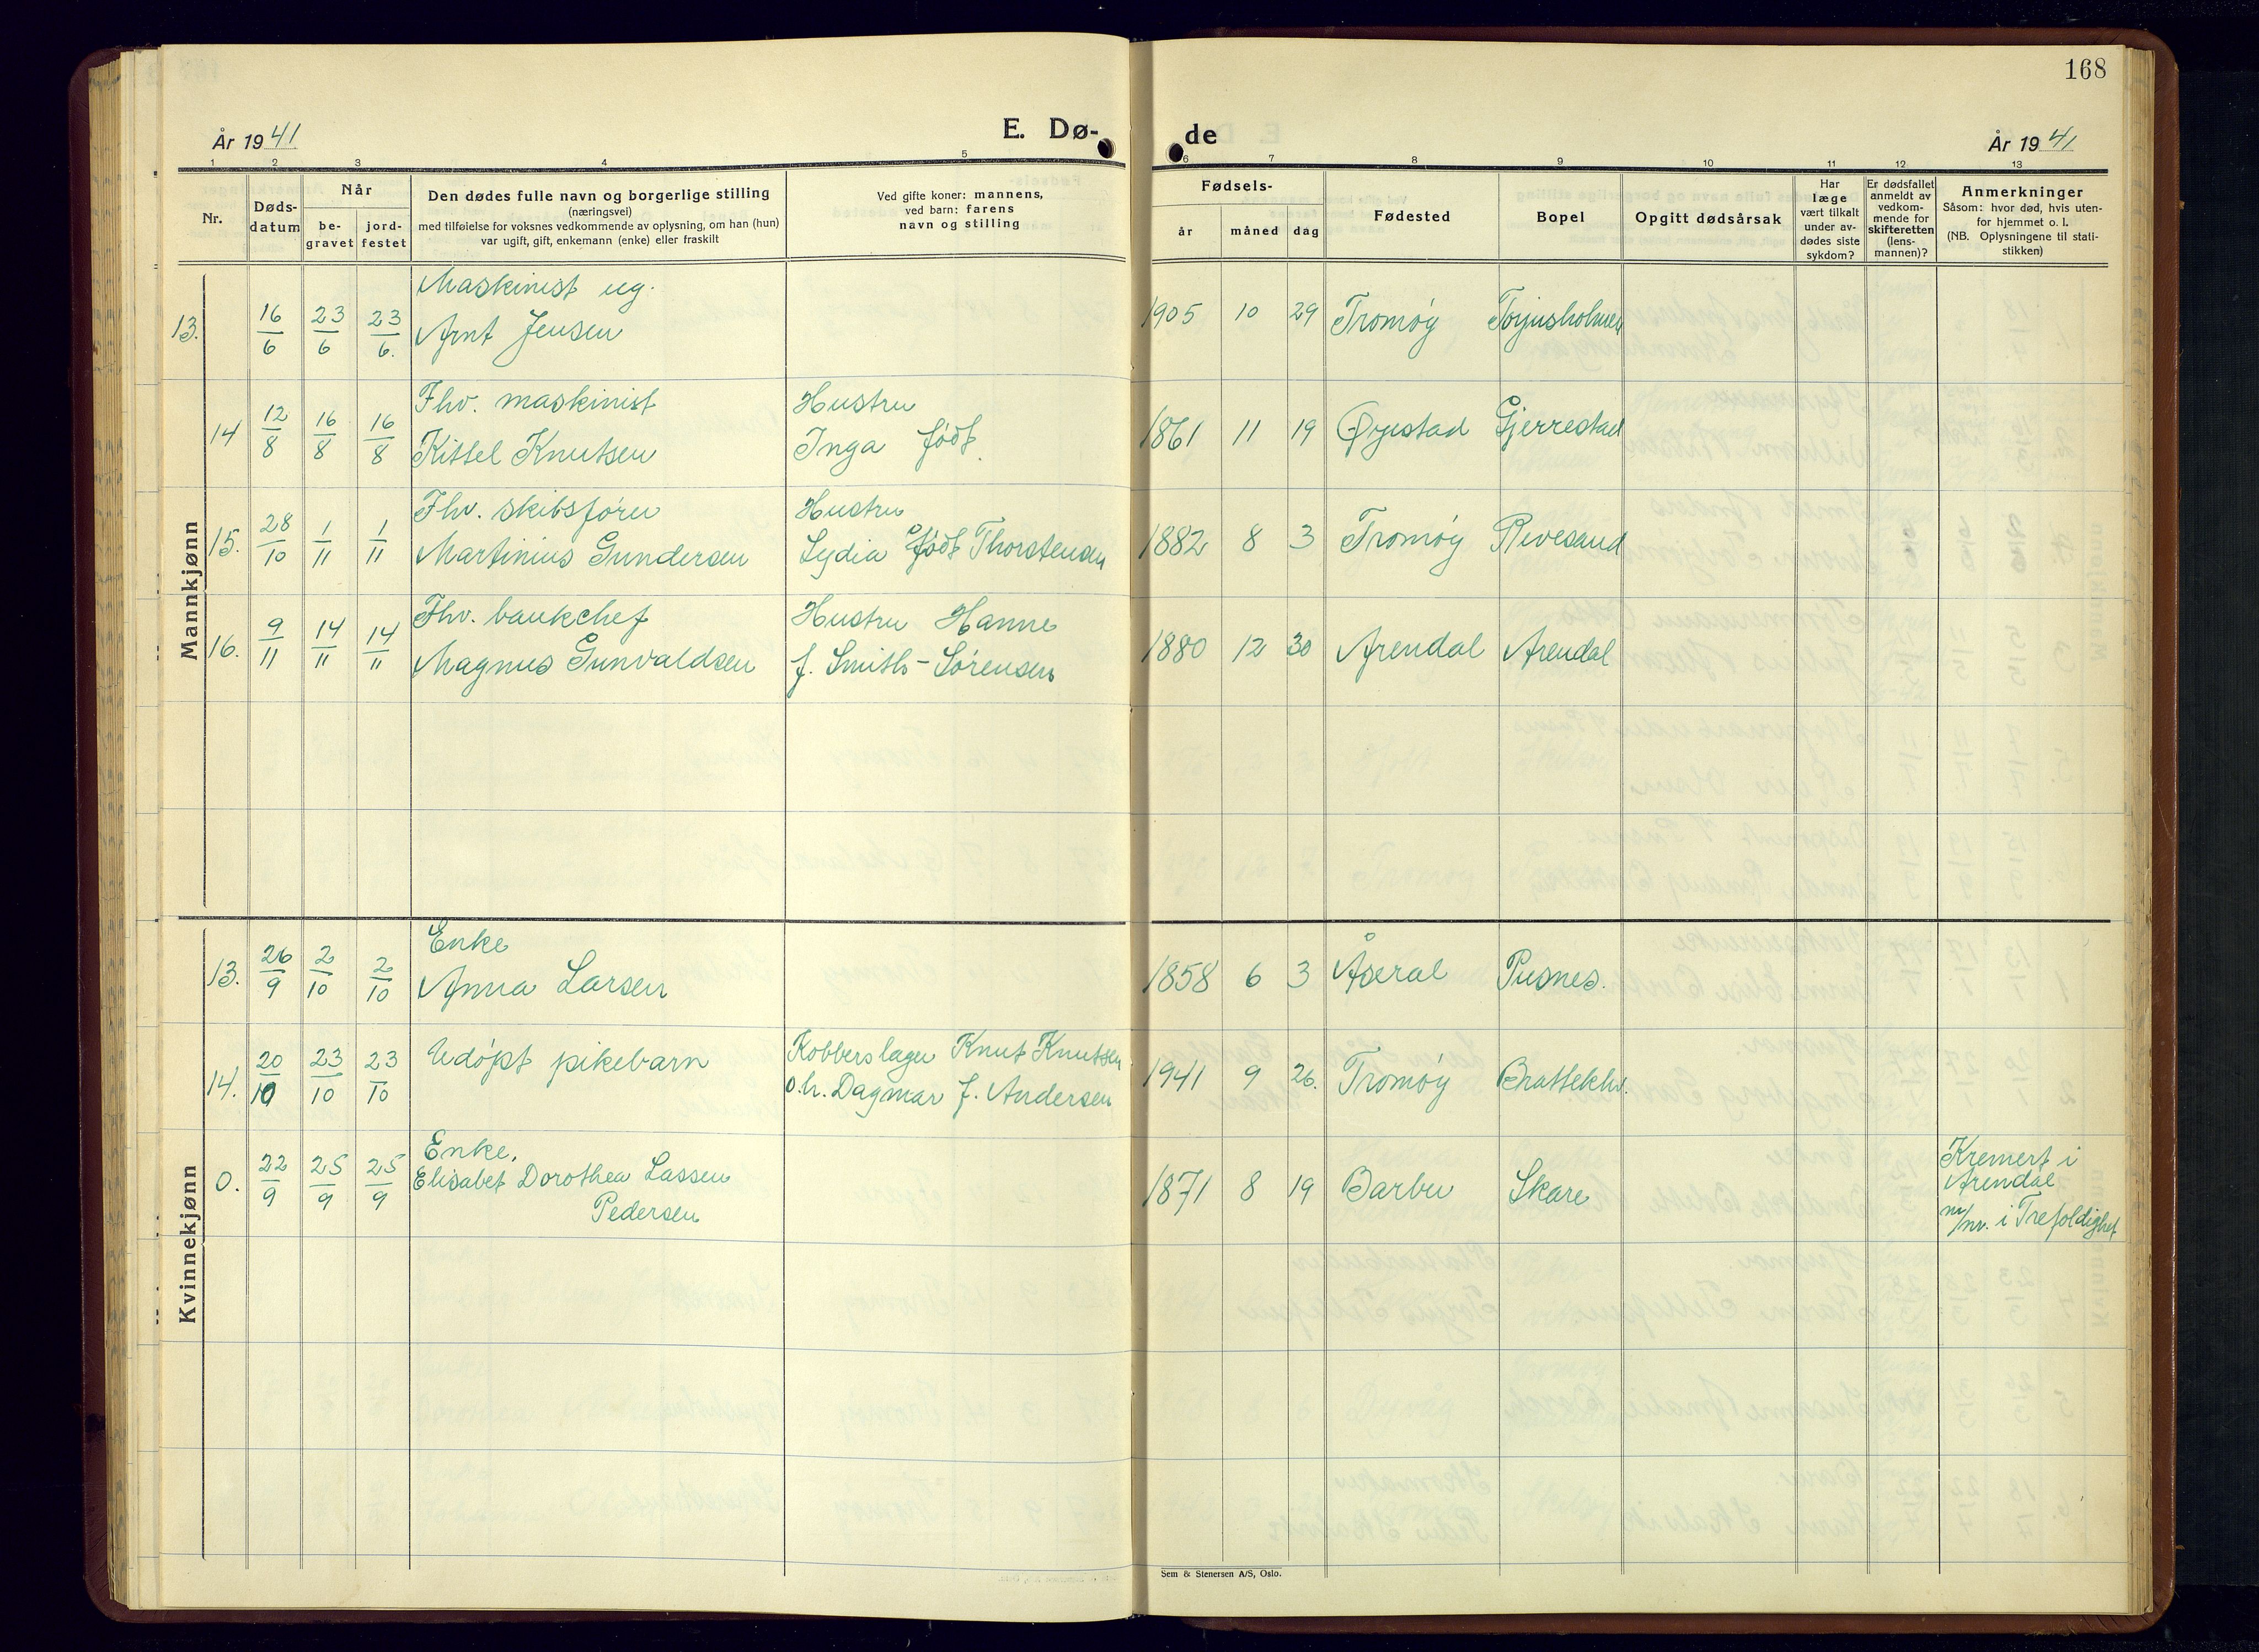 168
År 1941
E. Dø-
de
År 1941
1 2 3 4 5 6 7 8 9 10 11 12 13
Nr.
Døds-
datum
Når
be-
gravet
jord-
festet
Den dødes fulle navn og borgerlige stilling
(næringsvei)
med tilføielse for voksnes vedkommende av oplysning, om han (hun)
var ugift, gift, enkemann (enke) eller fraskilt
Ved gifte koner: mannens,
ved barn: farens
navn og stilling
Fødsels-
år måned dag
Fødested
Bopel
Opgitt dødsårsak
Har
læge
vært tilkalt
under av-
dødes siste
sykdom?
Er dødsfallet
anmeldt av
vedkom-
mende for
skifteretten
(lens-
mannen)?
Anmerkninger
Såsom: hvor død, hvis uten-
for hjemmet o. l.
(NB. Oplysningene til stati-
stikken)
Mannkjønn
Maskinist ug.
13. 16/6 23/6 23/6. Arnt Jensen 1905 10 29 Tromøy Torjusholmen
Fhv. maskinist Hustru
14 12/8 16/8 16/8 Kittel Knutsen Inga født 1861 11 19 Øyestad Gjerrestad
Fhv. skibsfører Hustru
15. 28/10 1/11 1/11 Martinius Gundersen Lydia født Thorstensen 1882 8 3 Tromøy Revesand
Fhv. bankchef Hustru Hanne
16. 9/11 14/11 14/11 Magnus Gunvaldsen f. Smith-Sørensen 1880 12 30 Arendal Arendal
Kvinnekjønn
Enke
13. 26/9 2/10 2/10 Anna Larsen 1858 6 3 Åseral Pusnes.
14. 20/10 23/10 23/10 Udøpt pikebarn Kobberslager Knut Knutsen
o.h. Dagmar f. Andersen 1941 9 26. Tromøy Brattekl.
Enke,
0. 22/9 25/9 25/9 Elisabet Dorothea Lassen
Pedersen 1871 8 19 Barbu Skare
Kremert i
Arendal
i Trefoldighet
Sem & Stenersen A/S, Oslo.